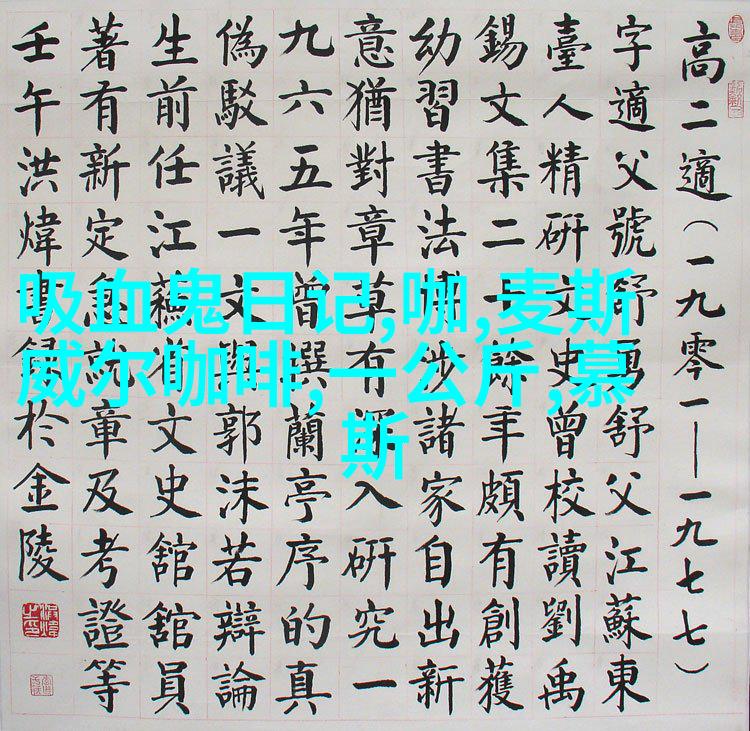 高二適(一九零一—一九七七)
字適父號舒舒父江蘇東
臺人精研文史曾校讀劉禹
錫文集二十餘年頗有創獲
幼習書法博涉諸家自出新
意猶對章草有深入研究一
九六五年曾撰蘭亭序的真
偽駁議一文與郭沫若辯論
生前任江蘇省文史舘舘員
著有新定急就章及考證等
壬午洪煒書錄於金陵
吸血鬼日记,咖,麦斯
威尔咖啡,一公斤,慕
斯